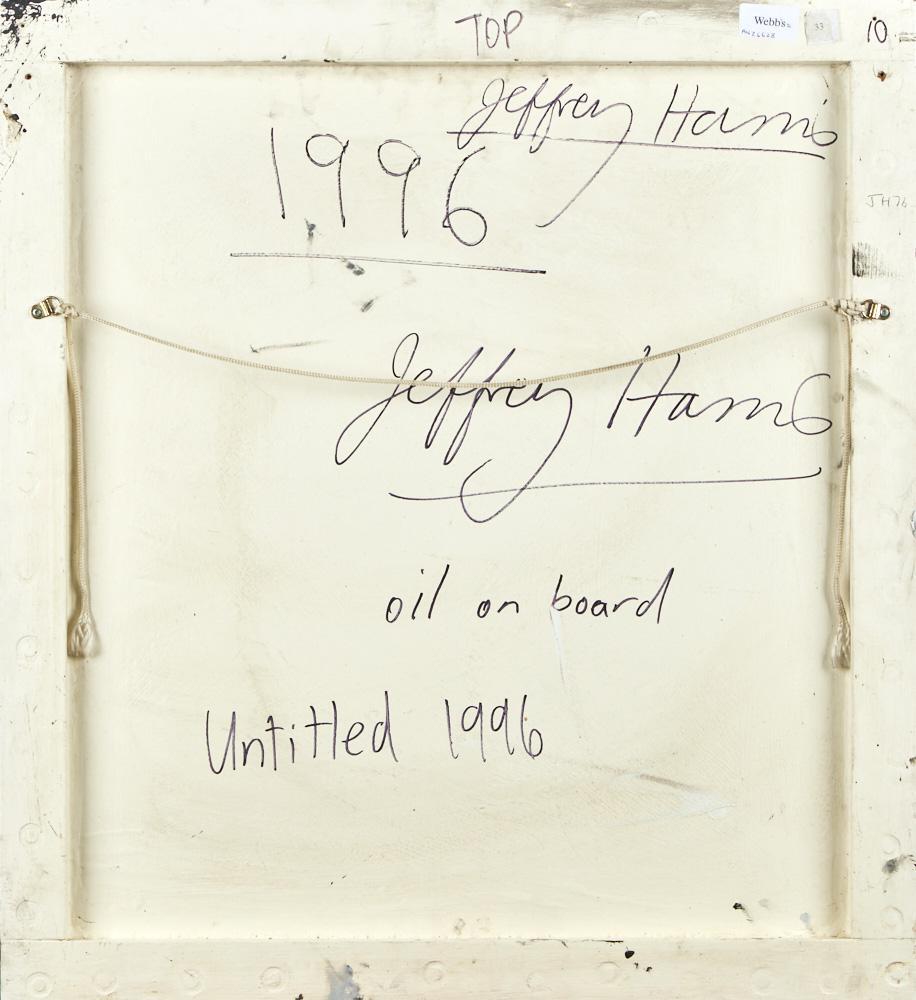 TOP
Webb's
33
10
Jeffrey Harris
1996
JH76
Jeffrey Harris
oil on board
Untitled 1996